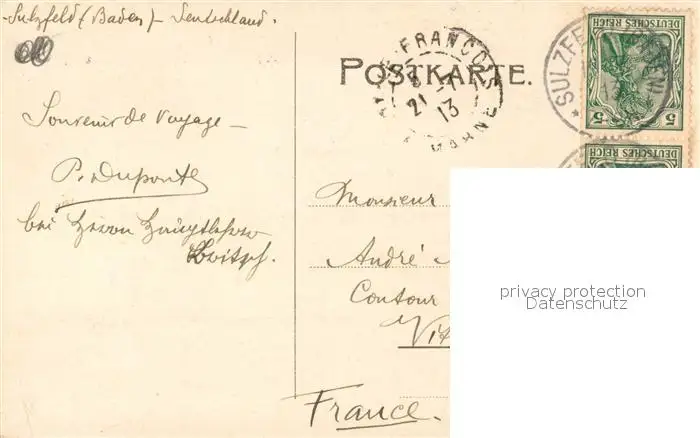 Sulzfeld (Baden) – Deutschland.
Souvenir de voyage –
P. Dupont
bei Herrn Hauptlehrer
POSTKARTE.
FRANÇOIS
21 - 7
13
MARNE
SULZFE
DEUTSCHES REICH
5 5
DEUTSCHES REICH
Monsieur
André
Contour
Vit
France.
privacy protection
Datenschutz